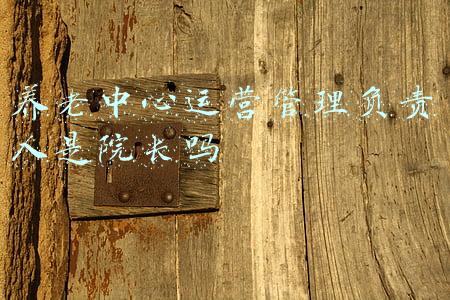 养老中心运营管理负责
人是院长吗